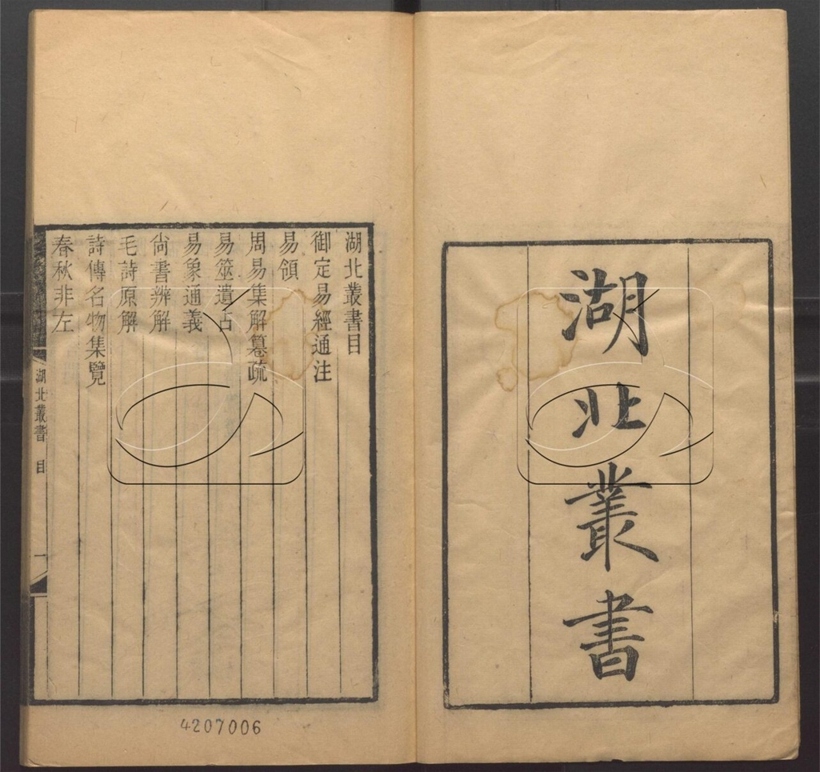 湖北叢書
湖北叢書目
御定易經通注
易領
周易集解纂疏
易筮遺占
易象通義
尙書辨解
毛詩原解
詩傳名物集覽
春秋非左
湖北叢書 目 一
4207006